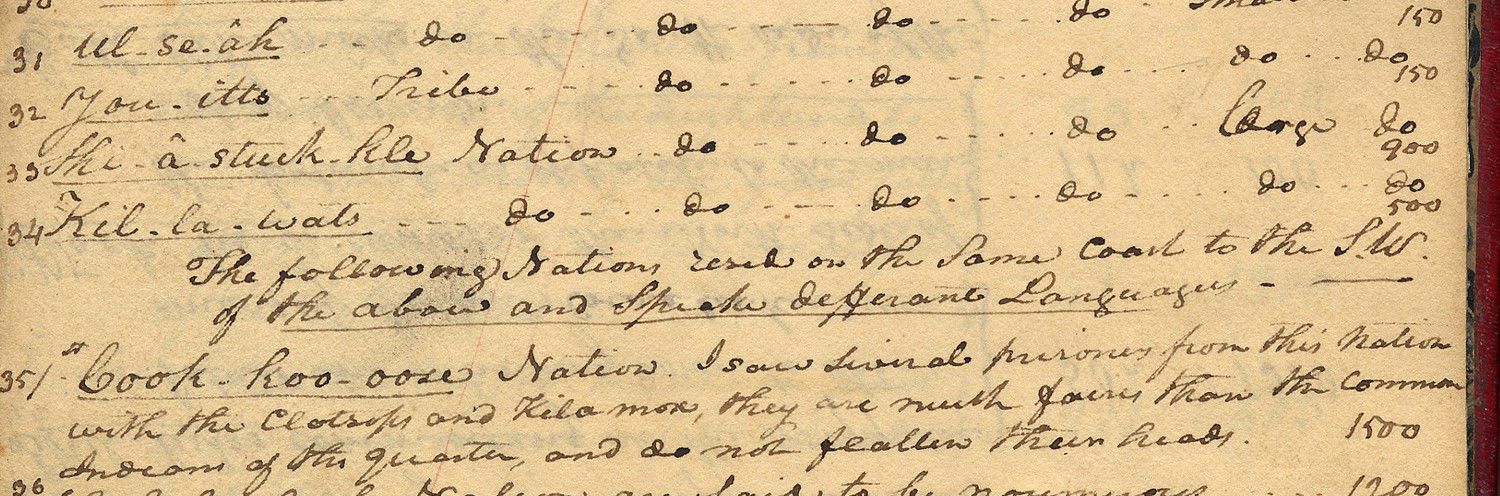 30 do do do Small 150
31 Ul-se-âh - - - do - - - do - - - do - - - do - - do . . do
32 You-itts - - - Tribe - - - do - - - do - - - do . . . do . . do 150
33 Shi-â-stuck-kle Nation . . do - - - do - - - do . . Large do 900
34 Kil-la-wats - - - do - - - do - - - do - - - do - - - do . . . do 500
The following Nations resid on the Same Coast to the S.W.
of the above and Speake defferant Languages -
35/ " Cook-koo-oose Nation. I saw several prisones from this Nation
with the Clotsops and Kilamox, they are much fairer than the common
Indians of this quarter, and do not flatten their heads. 1500
36 Nation are said to be noumerous 1200